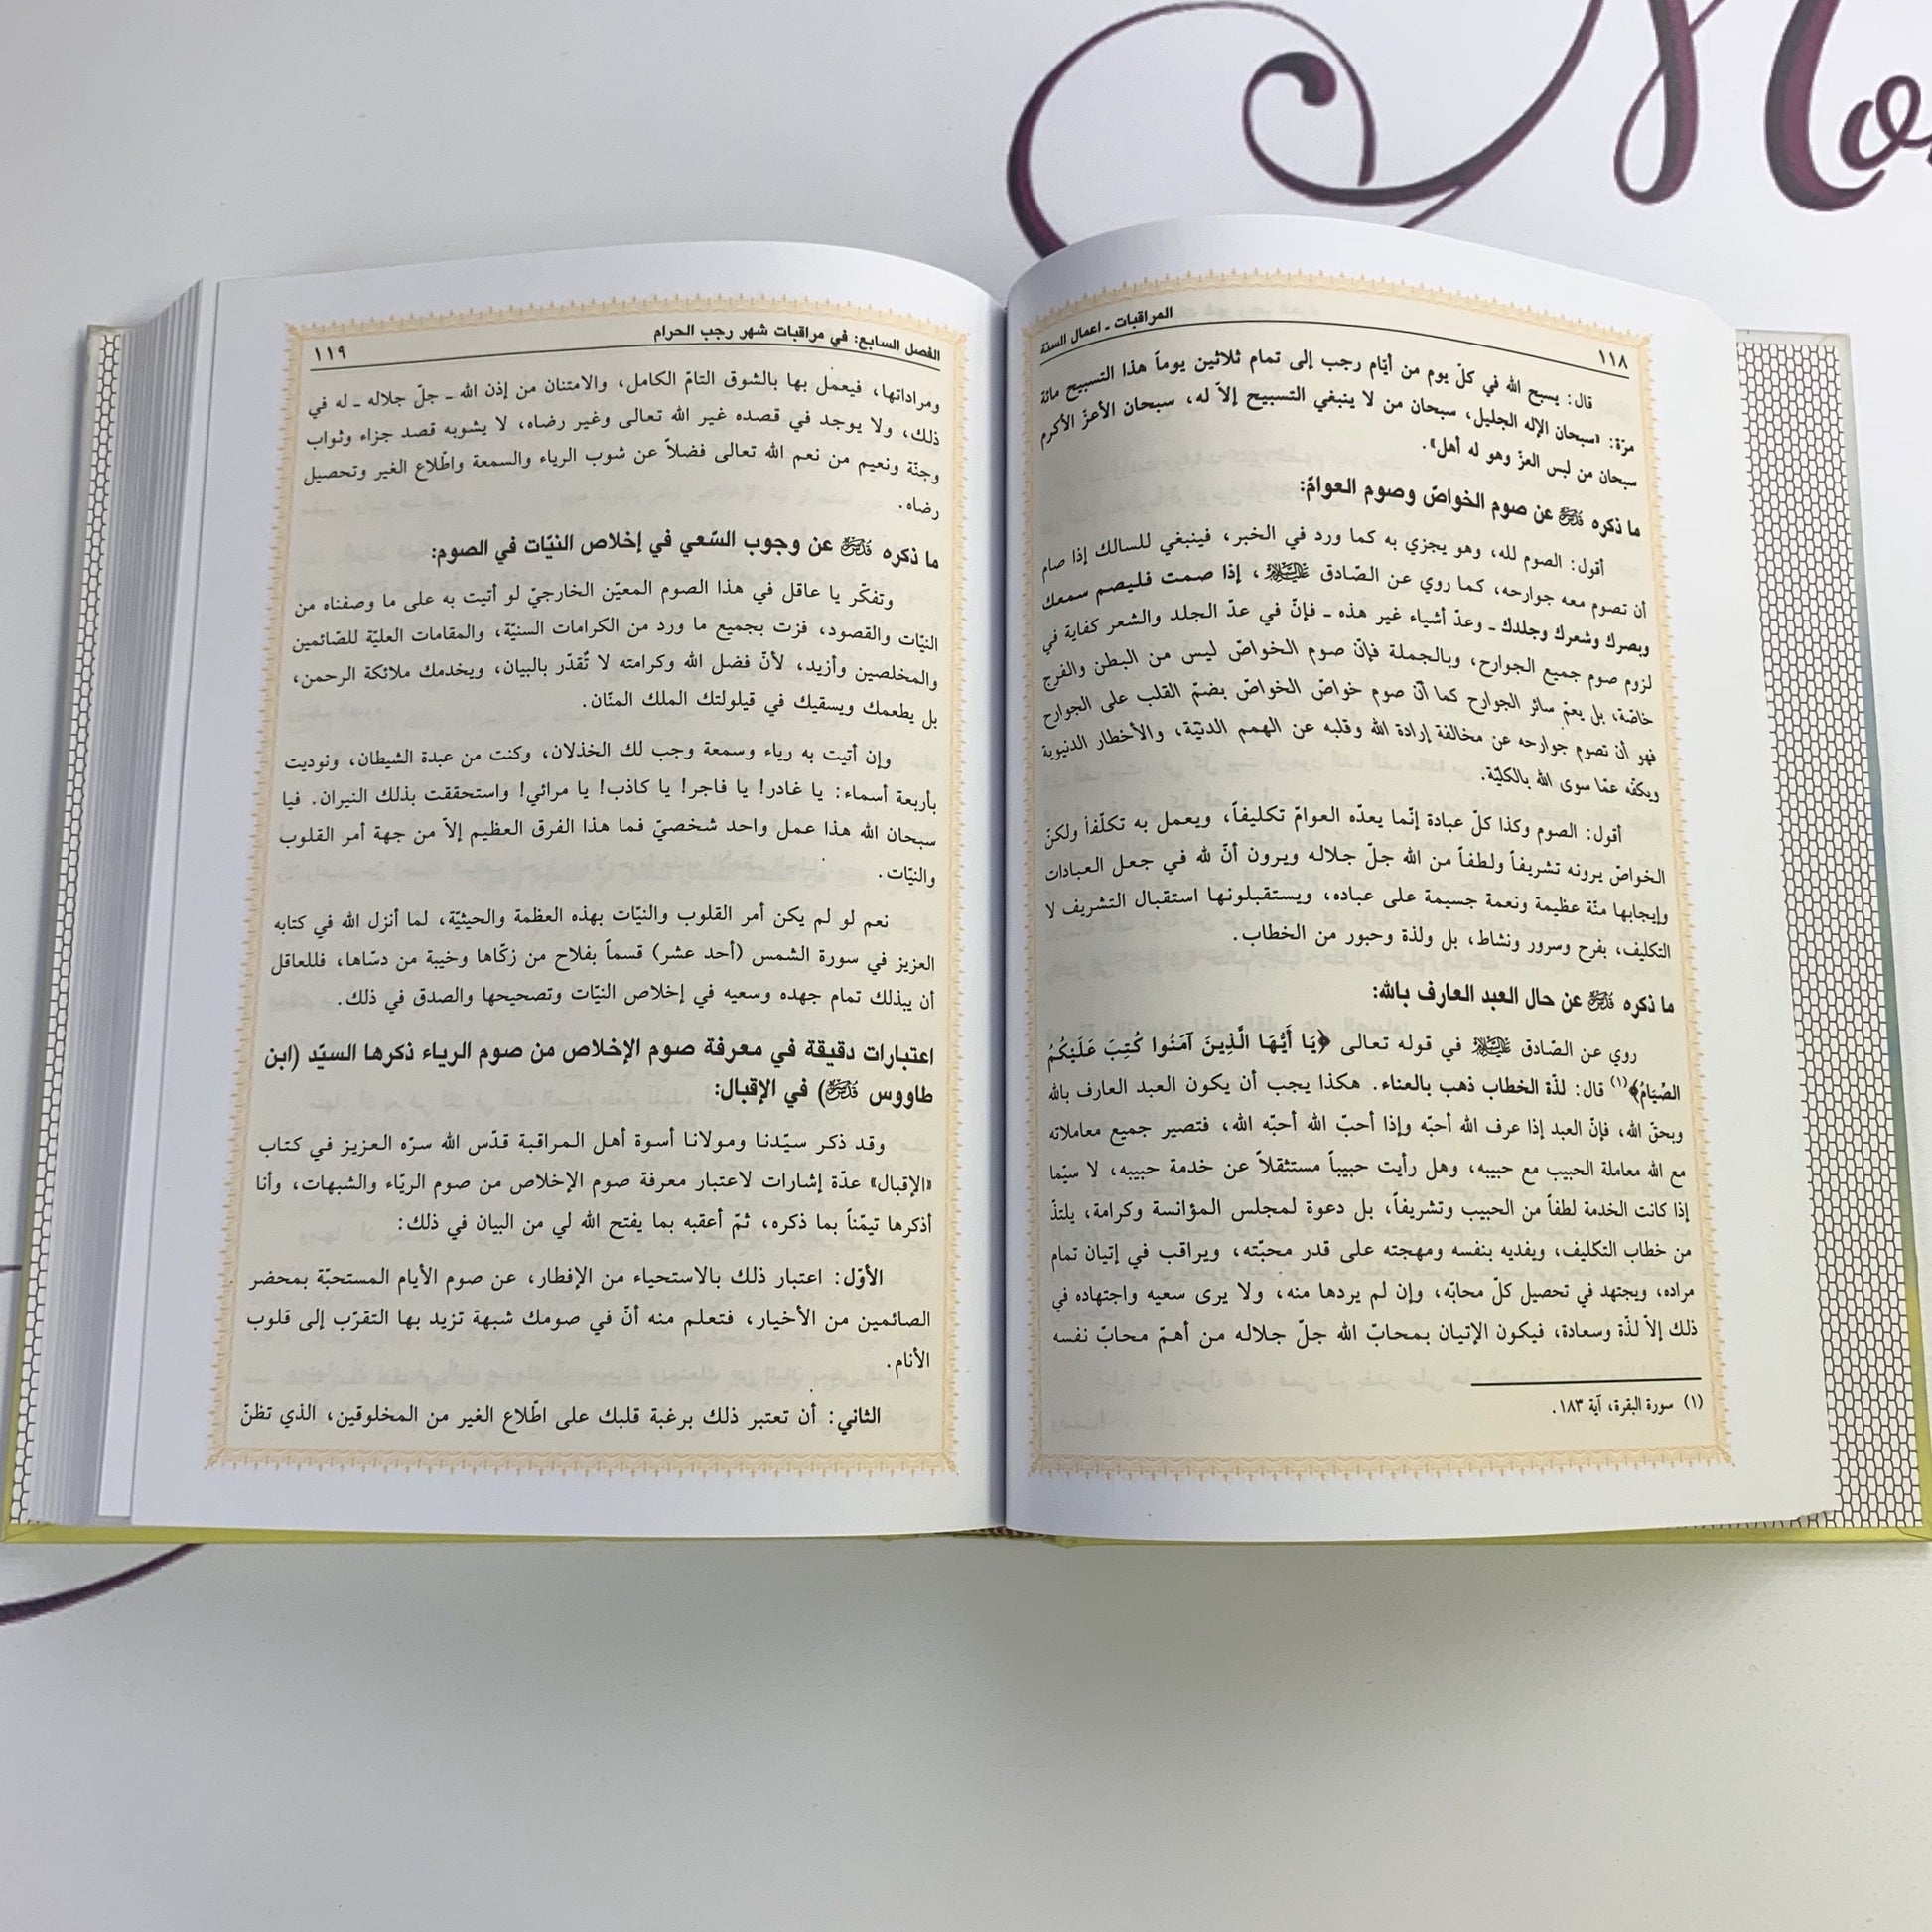 المراقبات ـ اعمال السنة
١١٨
قال: يسبح الله في كلّ يوم من أيّام رجب إلى تمام ثلاثين يوماً هذا التسبيح مائة
مرّة: «سبحان الإله الجليل، سبحان من لا ينبغي التسبيح إلاّ له، سبحان الأعزّ الأكرم
سبحان من لبس العزّ وهو له أهل».
ما ذكره قدس سره عن صوم الخواصّ وصوم العوامّ:
أقول: الصوم لله، وهو يجزي به كما ورد في الخبر، فينبغي للسالك إذا صام
أن تصوم معه جوارحه، كما روي عن الصّادق عليه السلام، إذا صمت فليصم سمعك
وبصرك وشعرك وجلدك ـ وعدّ أشياء غير هذه ـ فإنّ في عدّ الجلد والشعر كفاية في
لزوم صوم جميع الجوارح، وبالجملة فإنّ صوم الخواصّ ليس من البطن والفرج
خاصّة، بل يعمّ سائر الجوارح كما أنّ صوم خواصّ الخواصّ بضمّ القلب على الجوارح
فهو أن تصوم جوارحه عن مخالفة إرادة الله وقلبه عن الهمم الدنيّة، والأخطار الدنيوية
ويكفّه عمّا سوى الله بالكليّة.
أقول: الصوم وكذا كلّ عبادة إنّما يعدّه العوامّ تكليفاً، ويعمل به تكلّفاً ولكنّ
الخواصّ يرونه تشريفاً ولطفاً من الله جلّ جلاله ويرون أنّ لله في جعل العبادات
وإيجابها منّة عظيمة ونعمة جسيمة على عباده، ويستقبلونها استقبال التشريف لا
التكليف، بفرح وسرور ونشاط، بل ولذة وحبور من الخطاب.
ما ذكره قدس سره عن حال العبد العارف بالله:
روي عن الصّادق عليه السلام في قوله تعالى ﴿يَا أَيُّهَا الَّذِينَ آمَنُوا كُتِبَ عَلَيْكُمُ
الصِّيَامُ﴾(١) قال: لذّة الخطاب ذهب بالعناء. هكذا يجب أن يكون العبد العارف بالله
وبحقّ الله، فإنّ العبد إذا عرف الله أحبّه وإذا أحبّ الله أحبّه الله، فتصير جميع معاملاته
مع الله معاملة الحبيب مع حبيبه، وهل رأيت حبيباً مستثقلاً عن خدمة حبيبه، لا سيّما
إذا كانت الخدمة لطفاً من الحبيب وتشريفاً، بل دعوة لمجلس المؤانسة وكرامة، يلتذّ
من خطاب التكليف، ويفديه بنفسه ومهجته على قدر محبّته، ويراقب في إتيان تمام
مراده، ويجتهد في تحصيل كلّ محابّه، وإن لم يردها منه، ولا يرى سعيه واجتهاده في
ذلك إلاّ لذّة وسعادة، فيكون الإتيان بمحابّ الله جلّ جلاله من أهمّ محابّ نفسه
(١) سورة البقرة، آية ١٨٣.
الفصل السابع: في مراقبات شهر رجب الحرام
١١٩
ومراداتها، فيعمل بها بالشوق التامّ الكامل، والامتنان من إذن الله ـ جلّ جلاله ـ له في
ذلك، ولا يوجد في قصده غير الله تعالى وغير رضاه، لا يشوبه قصد جزاء وثواب
وجنّة ونعيم من نعم الله تعالى فضلاً عن شوب الرياء والسمعة واطّلاع الغير وتحصيل
رضاه.
ما ذكره قدس سره عن وجوب السّعي في إخلاص النيّات في الصوم:
وتفكّر يا عاقل في هذا الصوم المعيّن الخارجيّ لو أتيت به على ما وصفناه من
النيّات والقصود، فزت بجميع ما ورد من الكرامات السنيّة، والمقامات العليّة للصّائمين
والمخلصين وأزيد، لأنّ فضل الله وكرامته لا تُقدّر بالبيان، ويخدمك ملائكة الرحمن،
بل يطعمك ويسقيك في قيلولتك الملك المنّان.
وإن أتيت به رياء وسمعة وجب لك الخذلان، وكنت من عبدة الشيطان، ونوديت
بأربعة أسماء: يا غادر! يا فاجر! يا كاذب! يا مرائي! واستحققت بذلك النيران. فيا
سبحان الله هذا عمل واحد شخصيّ فما هذا الفرق العظيم إلاّ من جهة أمر القلوب
والنيّات.
نعم لو لم يكن أمر القلوب والنيّات بهذه العظمة والحيثيّة، لما أنزل الله في كتابه
العزيز في سورة الشمس (أحد عشر) قسماً بفلاح من زكّاها وخيبة من دسّاها، فللعاقل
أن يبذلك تمام جهده وسعيه في إخلاص النيّات وتصحيحها والصدق في ذلك.
اعتبارات دقيقة في معرفة صوم الإخلاص من صوم الرياء ذكرها السيّد (ابن
طاووس قدس سره) في الإقبال:
وقد ذكر سيّدنا ومولانا أسوة أهل المراقبة قدّس الله سرّه العزيز في كتاب
«الإقبال» عدّة إشارات لاعتبار معرفة صوم الإخلاص من صوم الريّاء والشبهات، وأنا
أذكرها تيمّناً بما ذكره، ثمّ أعقبه بما يفتح الله لي من البيان في ذلك:
الأوّل: اعتبار ذلك بالاستحياء من الإفطار، عن صوم الأيام المستحبّة بمحضر
الصائمين من الأخيار، فتعلم منه أنّ في صومك شبهة تزيد بها التقرّب إلى قلوب
الأنام.
الثاني: أن تعتبر ذلك برغبة قلبك على اطّلاع الغير من المخلوقين، الذي تظنّ